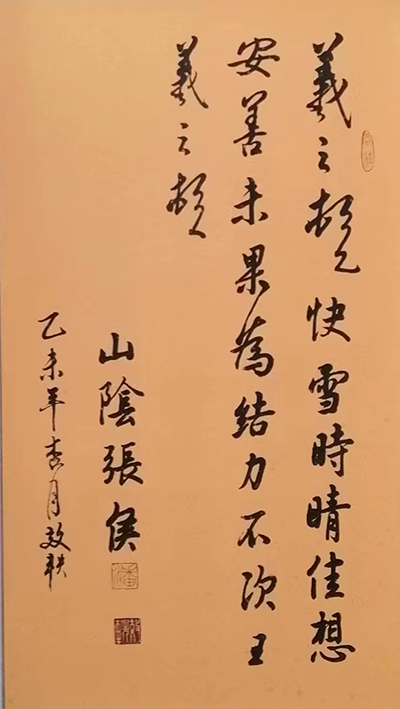 羲之頓首快雪時晴佳想
安善未果為結力不次王
羲之頓首
山陰張侯
乙未年春月敬軼